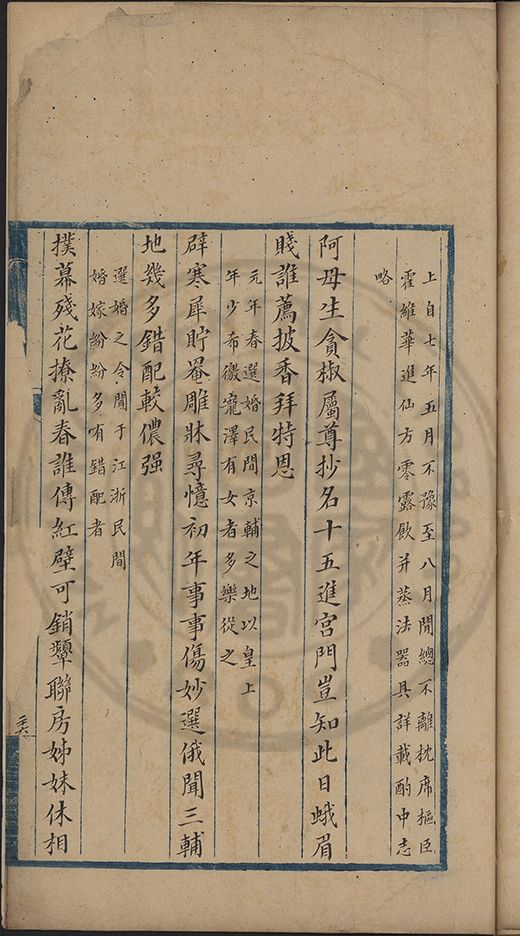 上自七年五月不豫至八月間總不離枕席樞臣
霍維華進仙方零露飲并蒸法器具詳載酌中志
略
阿母生貪椒屬尊抄名十五進宮門豈知此日蛾眉
賤誰薦披香拜特恩
元年春選婚民間京輔之地以皇上
年少希徼寵澤有女者多樂從之
辟寒犀貯罨雕牀尋憶初年事事傷妙選俄聞三輔
地幾多錯配較儂强
選婚之令聞于江浙民間
婚嫁紛紛多有錯配者
撲幕殘花撩亂春誰傳紅壁可銷顰聯房姊妹休相